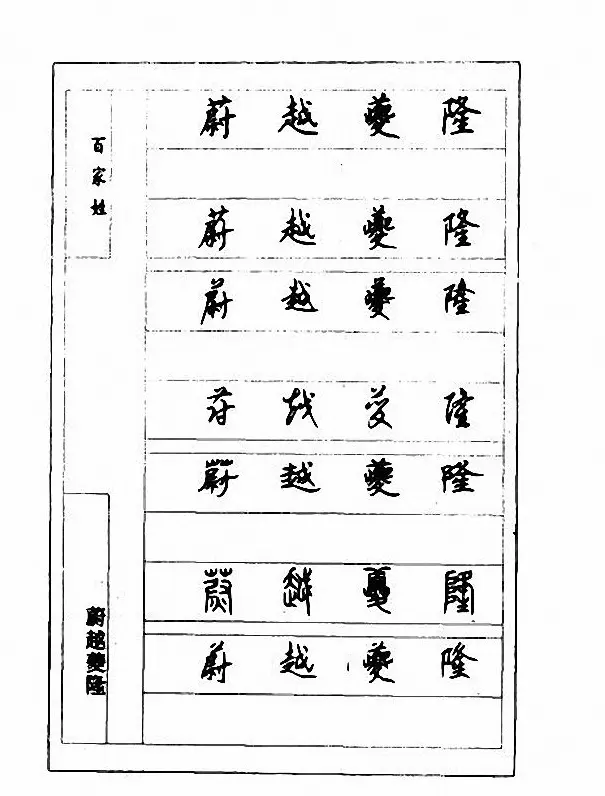 百家姓
蔚越夔隆
蔚越夔隆
蔚越夔隆
蔚越夔隆
蔚越夔隆
蔚越夔隆
蔚越夔隆
蔚越夔隆